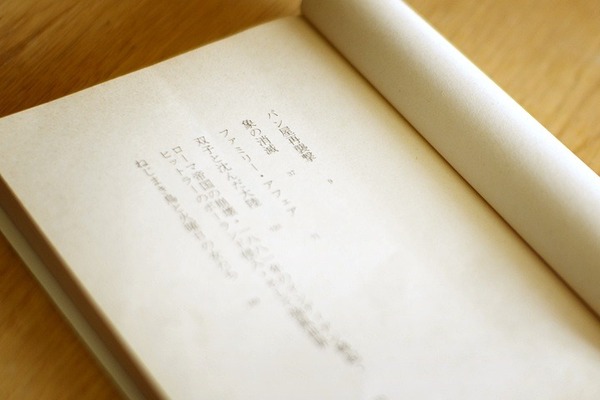 パン屋再襲撃
象の消滅
ファミリー・アフェア
双子と沈んだ大陸
ローマ帝国の崩壊・一八八一年の
ヒットラーのポーランド侵入・そして
ねじまき鳥と火曜日の女たち